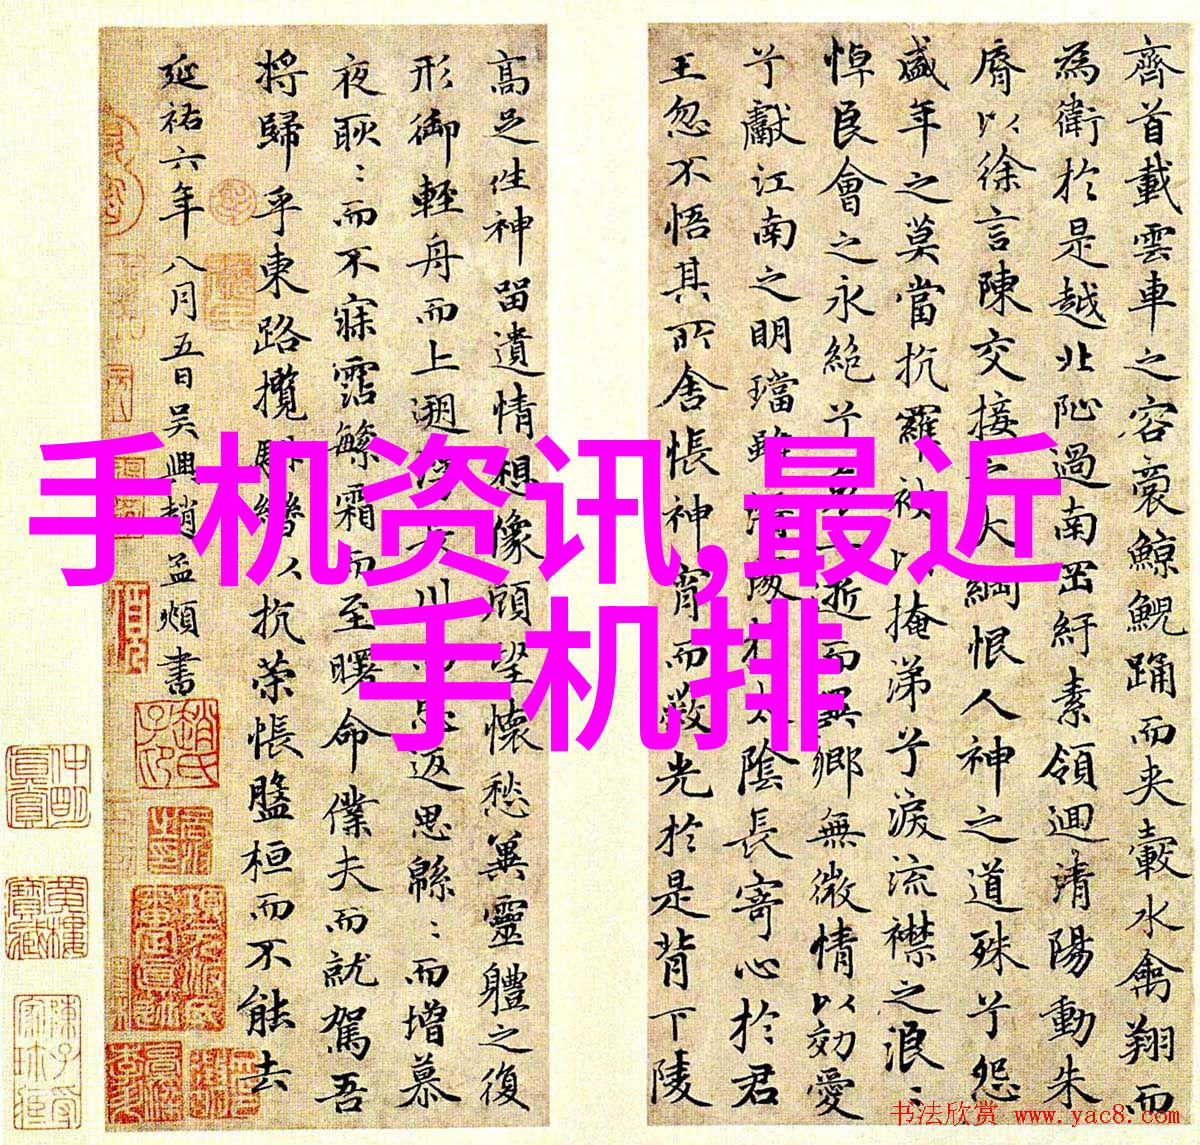 手机资讯,最近
手机排
齊首載雲車之容裔鯨鯢踊而夾轂水禽翔而
為衛於是越北沚過南岡紆素領迴清陽動朱
脣以徐言陳交接之大綱恨人神之道殊兮怨
盛年之莫當抗羅袂以掩涕兮淚流襟之浪〻
悼良會之永絕兮一逝而異鄉無微情以効愛
兮獻江南之明璫雖潛處於太陰長寄心於君
王忽不悟其所舍悵神宵而蔽光於是背下陵
高足往神留遺情想像顧望懷愁冀靈體之復
形御輕舟而上遡浮長川而忘返思緜〻而增慕
夜耿〻而不寐霑繁霜而至曙命僕夫而就駕吾
將歸乎東路攬騑轡以抗策悵盤桓而不能去
延祐六年八月五日吳興趙孟頫書
书法欣赏 www.yac8.com